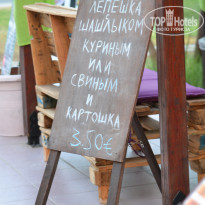 ЛЕПЁШКА
ШАШЛЫКОМ
КУРИНЫМ
ИЛИ
СВИНЫМ
И
КАРТОШКА
350
TOP HOTELS
ФОТО ТУРИСТА